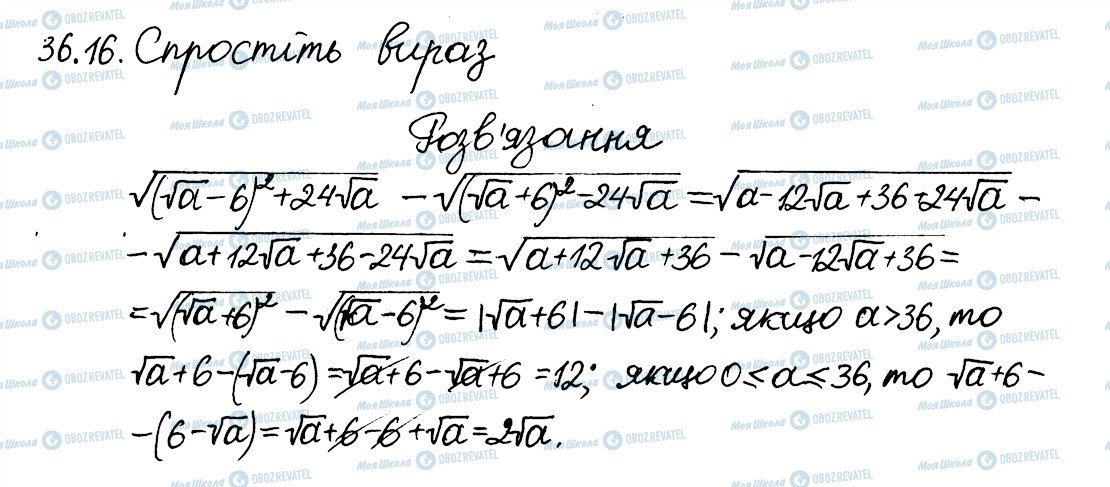 36.16. Спростіть вираз
Розв'язання
√((√a-6)²+24√a) - √((√a+6)²-24√a) = √(a-12√a+36-24√a) -
- √(a+12√a+36-24√a) = √(a+12√a+36) - √(a-12√a+36) =
= √((√a+6)²) - √((√a-6)²) = |√a+6|-|√a-6|; якщо a>36, то
√a+6-(√a-6) = √a+6-√a+6 = 12; якщо 0≤a≤36, то √a+6-
-(6-√a) = √a+6-6+√a = 2√a.